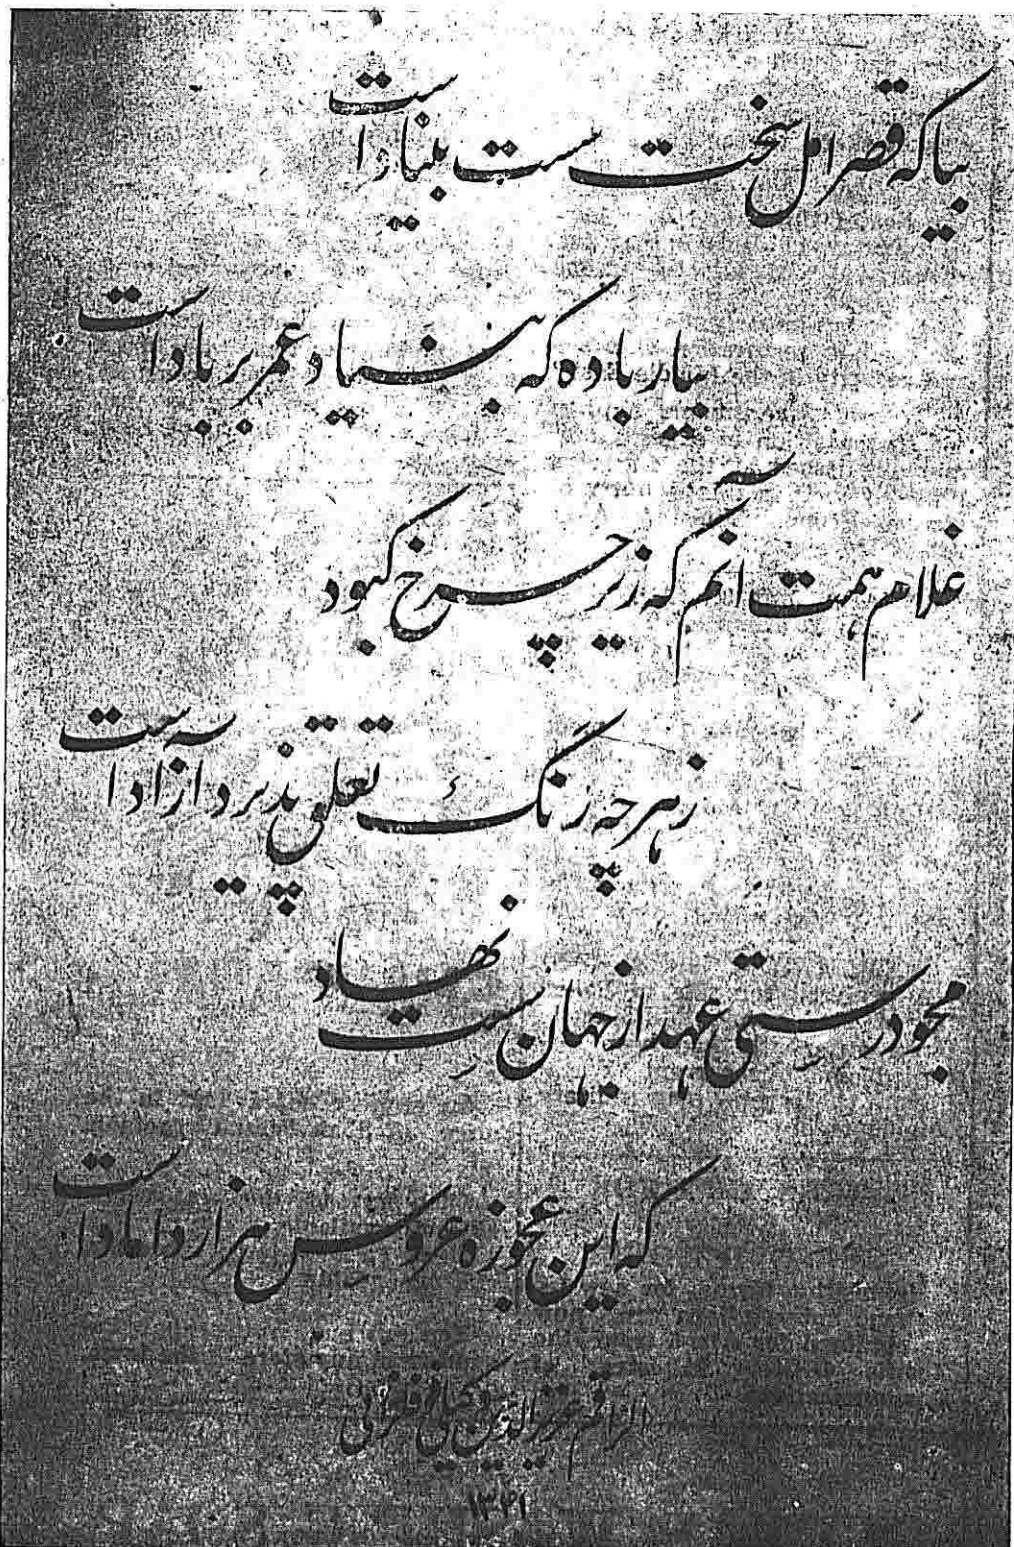 بیا که قصر امل سخت سست بنیاد است
بیار باده که بنیاد عمر بر باد است
غلام همت آنم که زیر چرخ کبود
ز هر چه رنگ تعلق پذیرد آزاد است
مجو درستی عهد از جهان سست نهاد
که این عجوزه عروس هزار داماد است
الراقم عزیزالدین وکیلی فوفلزائی
۱۳۴۱